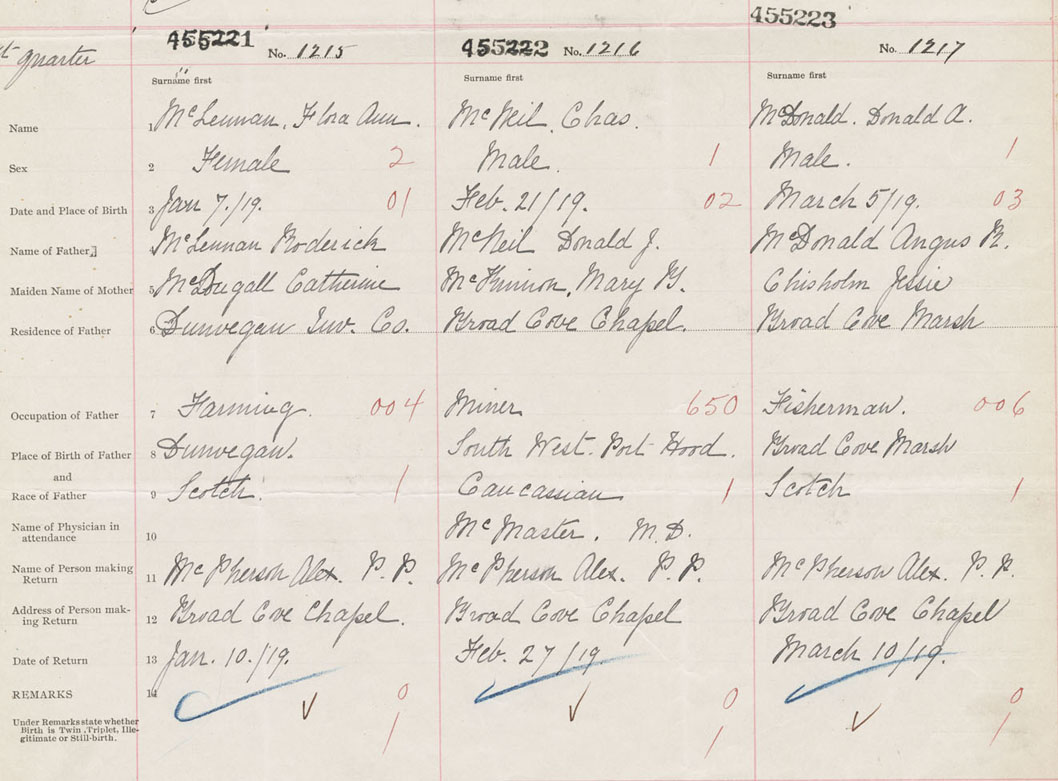 455223
455221 No. 1215 455222 No. 1216 No. 1217
quarter
Surname first Surname first Surname first
Name 1 McLennan, Flora Ann. McNeil, Chas. McDonald. Donald A.
Sex 2 Female 2 Male. 1 Male. 1
Date and Place of Birth 3 Jan 7./19. 01 Feb. 21/19. 02 March 5/19. 03
Name of Father 4 McLennan Roderick McNeil Donald J. McDonald Angus R.
Maiden Name of Mother 5 McDougall Catherine McKinnon, Mary B. Chisholm Jessie
Residence of Father 6 Dunvegan Inv. Co. Broad Cove Chapel. Broad Cove Marsh
Occupation of Father 7 Farming. 004 Miner 650 Fisherman. 006
Place of Birth of Father 8 Dunvegan. South West. Port Hood. Broad Cove Marsh
and
Race of Father 9 Scotch. 1 Caucassian 1 Scotch 1
Name of Physician in
attendance 10 McMaster. M.D.
Name of Person making
Return 11 McPherson Alex. P.P. McPherson Alex. P.P. McPherson Alex. P.P.
Address of Person mak-
ing Return 12 Broad Cove Chapel. Broad Cove Chapel Broad Cove Chapel
Date of Return 13 Jan. 10./19. Feb. 27/19. March 10/19.
REMARKS 14 0 0 0
Under Remarks state whether
Birth is Twin, Triplet, Ille-
gitimate or Still-birth. 1 1 1